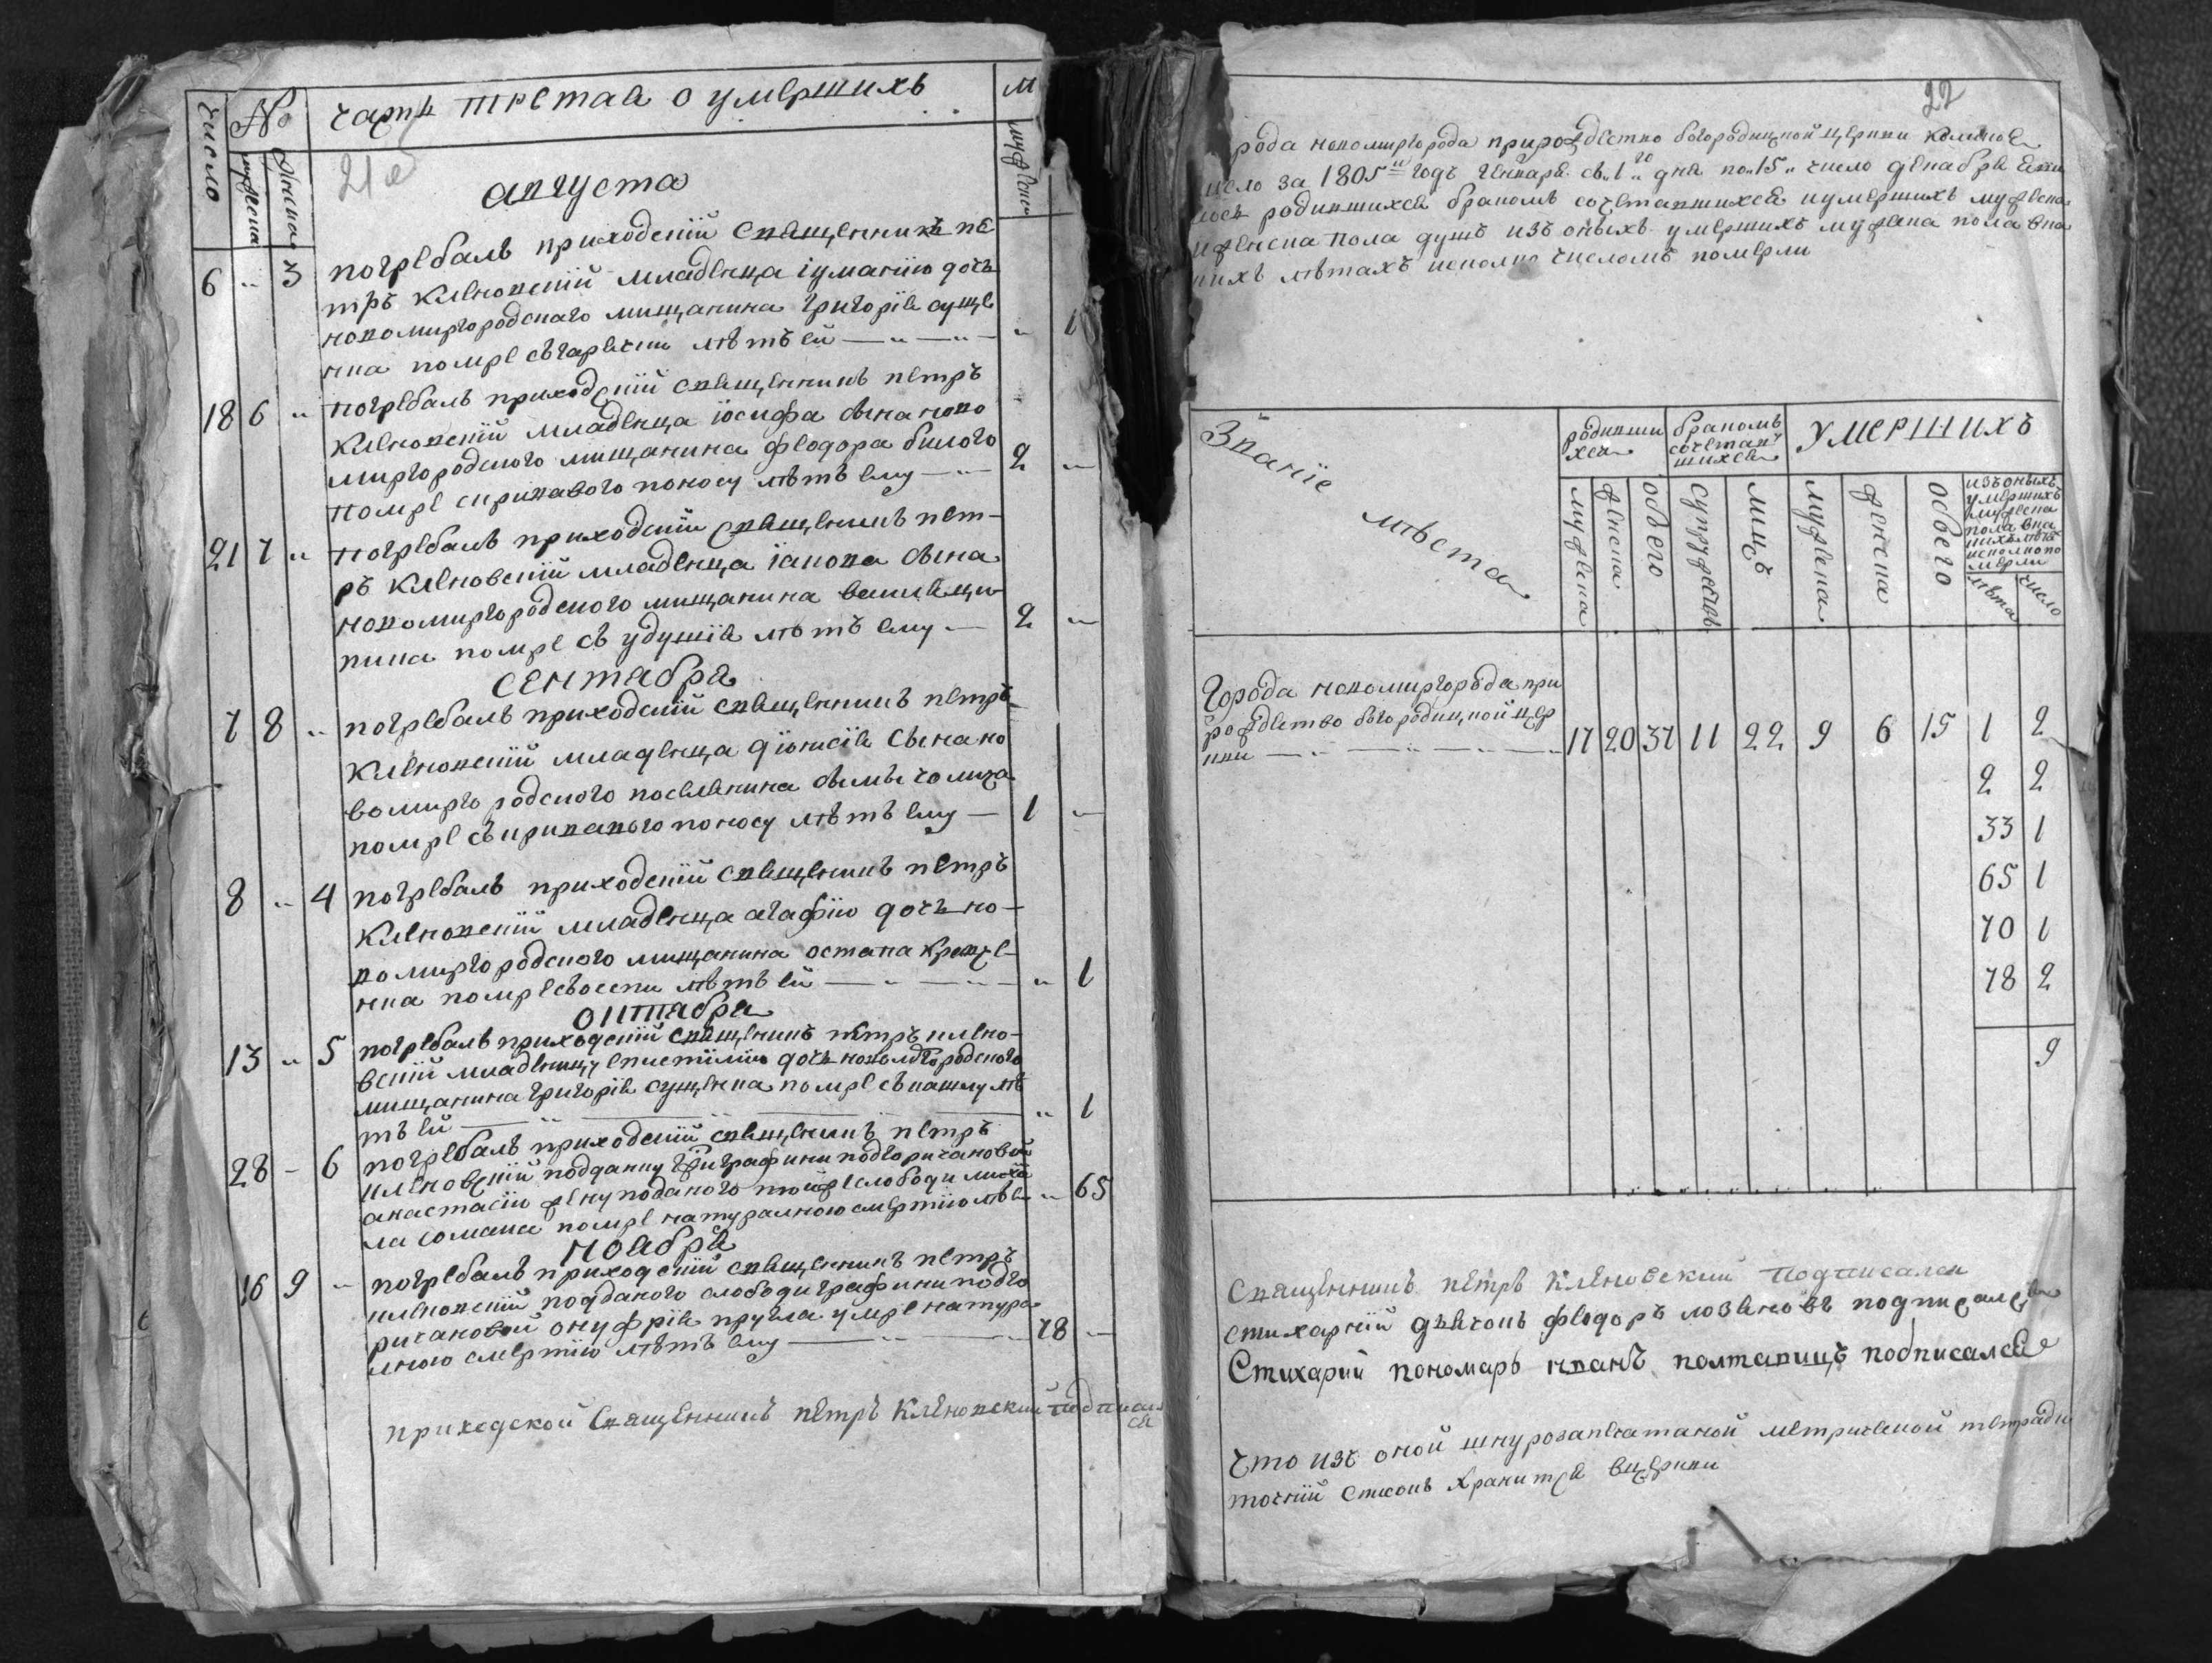 Число № часть третая о умершихъ м
мужеска женска мужеска
21 об
августа
6 " 3 погребалъ приходскій священникъ пе
тръ Клѣновскій младенца іуманію дочь
новомиргородскаго мищанина григорія суще
нка помре лѣтъ ей — " — " — " 1
18 6 " погребалъ приходскій священникъ петръ
Клѣновскій младенца іосифа сына ново
миргородского мищанина федора билого
помре кривавого поносу лѣтъ ему — " 2 "
21 7 " погребалъ приходскій священникъ пет-
ръ Клѣновскій младенца іакова сына
новомиргородского мищанина
помре съ удушія лѣтъ ему — 2 "
сентября
7 8 " погребалъ приходскій священникъ петръ
Клѣновскій младенца діонисія сына но
вомиргородского поселянина
помре съ кривавого поносу лѣтъ ему — 1 "
8 " 4 погребалъ приходскій священникъ петръ
Клѣновскій младенца агафію дочь но-
вомиргородского мищанина остапа кравче-
нка помре съ воспи лѣтъ ей — " — " — " 1
октября
13 " 5 погребалъ приходскій священникъ петръ клѣно-
вскій младеницу епистимію дочь новомиргородского
мищанина григорія сущенка помре съ кашлу лѣ
тъ ей — " " 1
28 " 6 погребалъ приходскій священникъ петръ
клѣновскій подданну графини подгоричановой
анастасію жену подданого тоиже слободи михаи
ла помре натуралною смертію лѣ " 65
ноября
16 9 " погребалъ приходскій священникъ петръ
клѣновскій подданого слободи графини подго
ричановой онуфрія умре натура
лною смертію лѣтъ ему — " — 78 "
приходской Священникъ петръ Клѣновскій подписал
ся
22
рода новомиргорода прирождество богородичной церкви коликое
число за 1805й годъ генваря съ 1го дня по 15 число декабря
родившихся бракомъ сочетавшихся и умершихъ мужеска
и женска пола душъ изъ оныхъ умершихъ мужеска пола вка
кихъ лѣтахъ исполно числомъ померли
Званіе мѣста
родивши
хся
бракомъ
сочетав
шихся
умершихъ
мужеска женска обоего супружествъ лицъ мужеска женска обоего
изъ оныхъ
умершихъ
мужеска
пола вка
кихъ лѣтах
исполно по
мерли
лѣта число
Города новомиргорода при
рождество богородичной цер
кви — " — " — " 17 20 37 11 22 9 6 15 1 2
2 2
33 1
65 1
70 1
78 2
9
Священникъ петръ Клѣновский подписался
стихарній дьячокъ федоръ лозановъ подписался
Стихарий пономарь иванъ полтавицъ подписался
Что изъ оной шнурозапечатаной метрической тетради
точній список хранится вцеркви